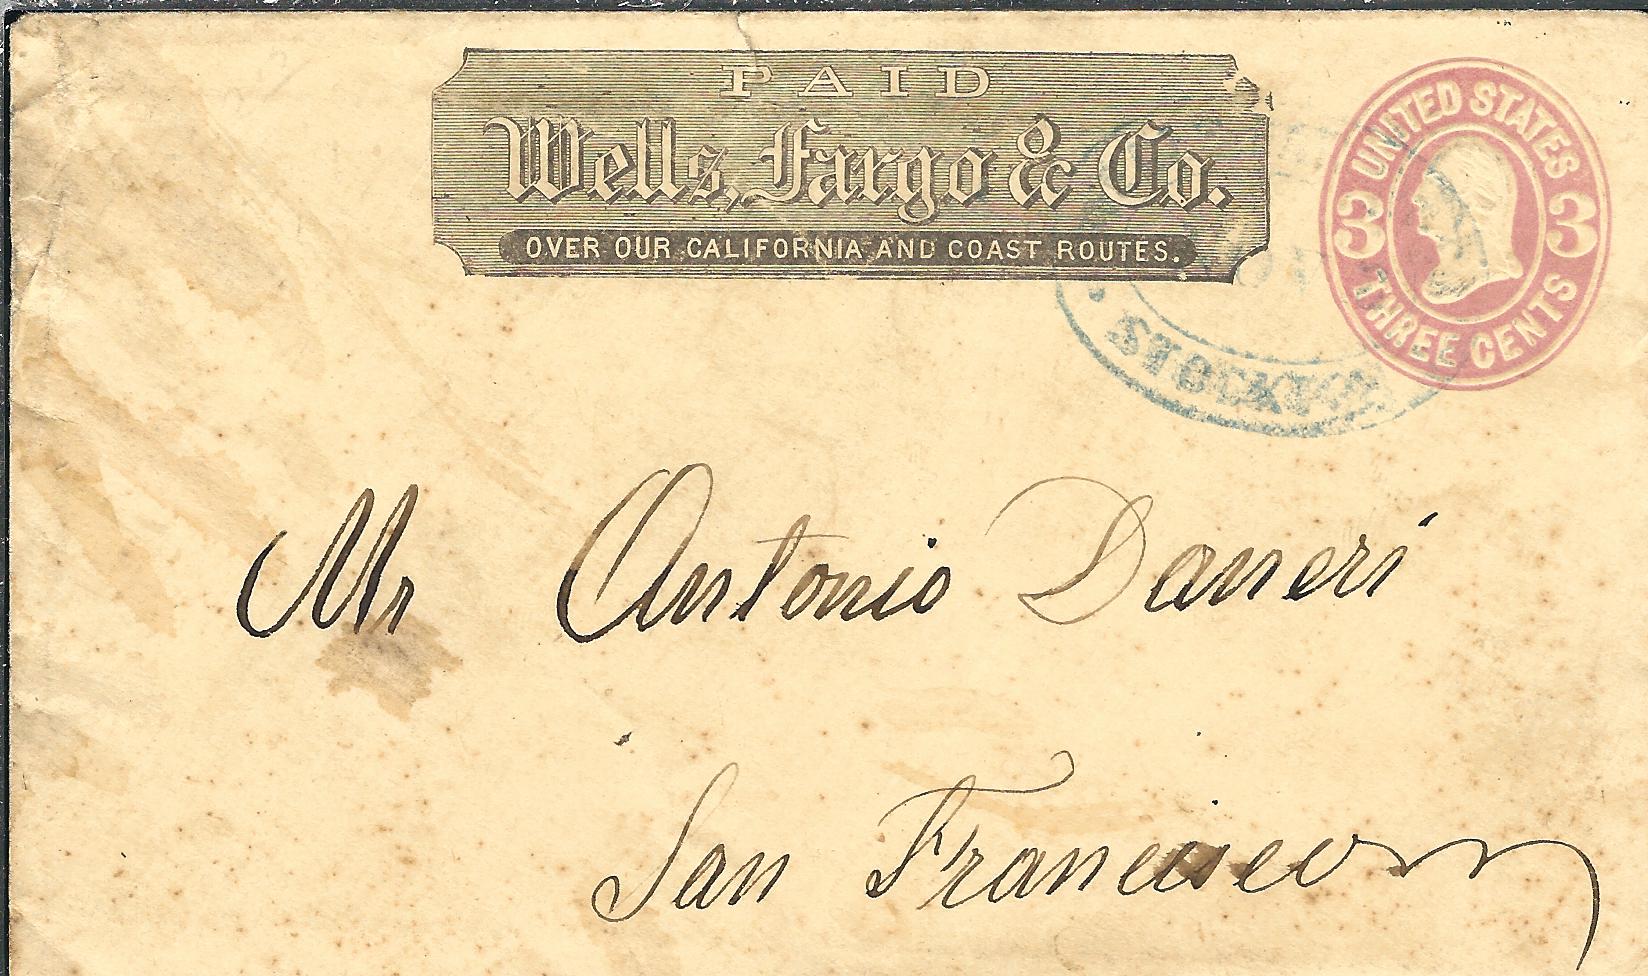 PAID
Wells, Fargo & Co.
OVER OUR CALIFORNIA AND COAST ROUTES.
UNITED STATES
3 3
THREE CENTS
STOCKTON
Mr Antonio Daneri
San Francisco